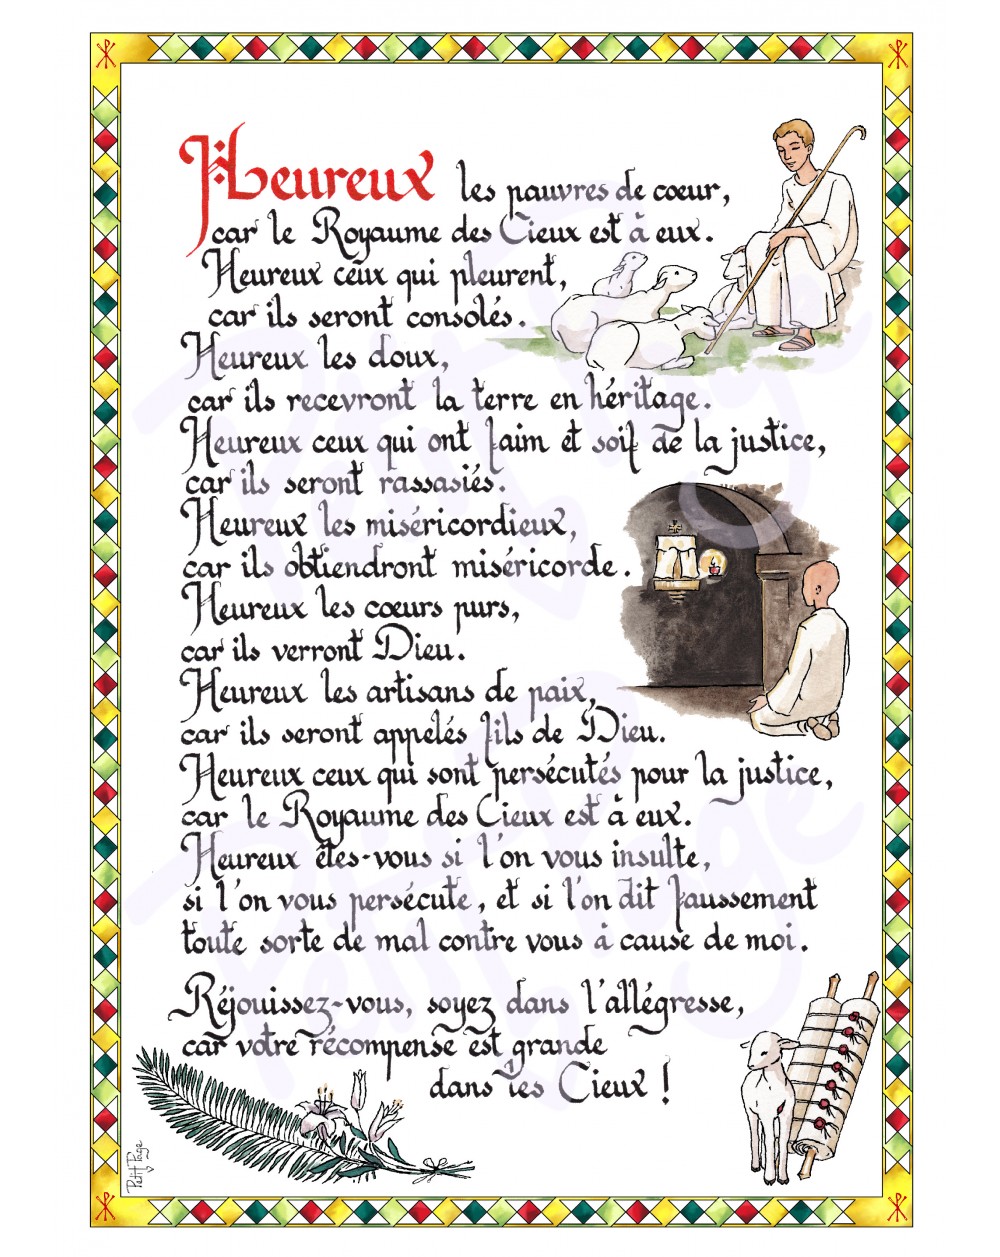 Heureux les pauvres de cœur,
car le Royaume des Cieux est à eux.
Heureux ceux qui pleurent,
car ils seront consolés.
Heureux les doux,
car ils recevront la terre en héritage.
Heureux ceux qui ont faim et soif de la justice,
car ils seront rassasiés.
Heureux les miséricordieux,
car ils obtiendront miséricorde.
Heureux les cœurs purs,
car ils verront Dieu.
Heureux les artisans de paix,
car ils seront appelés fils de Dieu.
Heureux ceux qui sont persécutés pour la justice,
car le Royaume des Cieux est à eux.
Heureux êtes-vous si l'on vous insulte,
si l'on vous persécute, et si l'on dit faussement
toute sorte de mal contre vous à cause de moi.
Réjouissez-vous, soyez dans l'allégresse,
car votre récompense est grande
dans les Cieux !
Petit Page
Petit Page
Petit Page